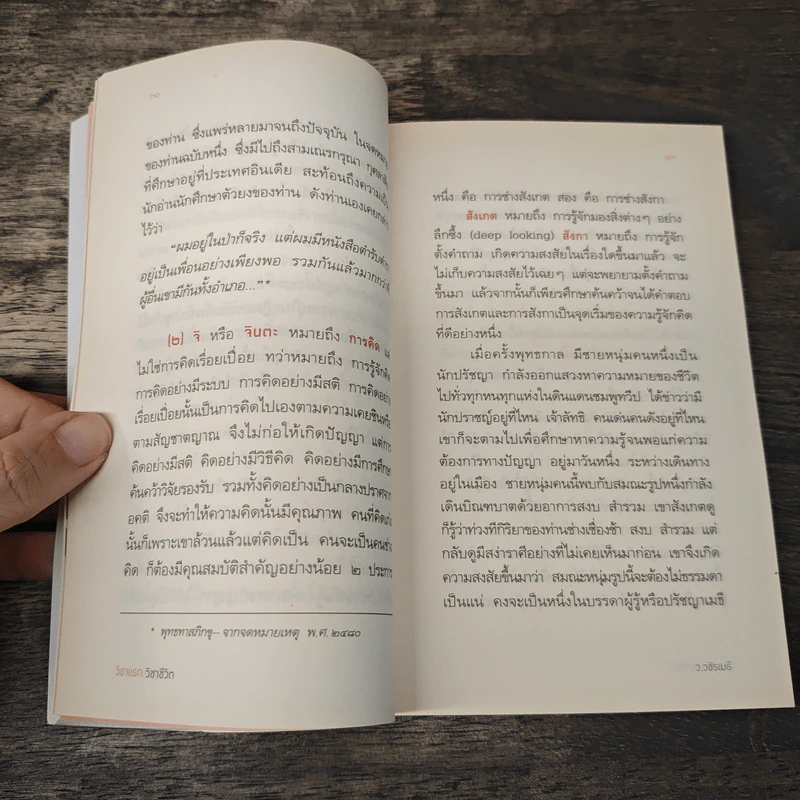 ของท่าน ซึ่งแพร่หลายมาจนถึงปัจจุบัน ในจดหมาย
ของท่านฉบับหนึ่ง ซึ่งมีไปถึงสามเณรกรุณา กุศลาสัย
ที่ศึกษาอยู่ที่ประเทศอินเดีย สะท้อนถึงความเป็น
นักอ่านนักศึกษาตัวยงของท่าน ดังท่านเองเคยกล่าว
ไว้ว่า
"ผมอยู่ในป่าก็จริง แต่ผมมีหนังสือตำรับตำรา
อยู่เป็นเพื่อนอย่างเพียงพอ รวมกันแล้วมากกว่าที่
ผู้อื่นเขามีกันทั้งอำเภอ..."*
(๒) จิ หรือ จินตะ หมายถึง การคิด
ไม่ใช่การคิดเรื่อยเปื่อย ทว่าหมายถึง การรู้จักคิด
การคิดอย่างมีระบบ การคิดอย่างมีสติ การคิดอย่าง
เรื่อยเปื่อยนั้นเป็นการคิดไปเองตามความเคยชินหรือ
ตามสัญชาตญาณ จึงไม่ก่อให้เกิดปัญญา แต่การ
คิดอย่างมีสติ คิดอย่างมีวิธีคิด คิดอย่างมีการศึกษา
ค้นคว้าวิจัยรองรับ รวมทั้งคิดอย่างเป็นกลางปราศจาก
อคติ จึงจะทำให้ความคิดนั้นมีคุณภาพ คนที่คิดเก่ง
นั้นก็เพราะเขาล้วนแล้วแต่คิดเป็น คนจะเป็นคนช่าง
คิด ก็ต้องมีคุณสมบัติสำคัญอย่างน้อย ๒ ประการ
* พุทธทาสภิกขุ-- จากจดหมายเหตุ พ.ศ.๒๔๘๐
วิชาแรก วิชาชีวิต
หนึ่ง คือ การช่างสังเกต สอง คือ การช่างสังกา
สังเกต หมายถึง การรู้จักมองสิ่งต่างๆ อย่าง
ลึกซึ้ง (deep looking) สังกา หมายถึง การรู้จัก
ตั้งคำถาม เกิดความสงสัยในเรื่องใดขึ้นมาแล้ว จะ
ไม่เก็บความสงสัยไว้เฉยๆ แต่จะพยายามตั้งคำถาม
ขึ้นมา แล้วจากนั้นก็เพียรศึกษาค้นคว้าจนได้คำตอบ
การสังเกตและการสังกาเป็นจุดเริ่มของความรู้จักคิด
ที่ดีอย่างหนึ่ง
เมื่อครั้งพุทธกาล มีชายหนุ่มคนหนึ่งเป็น
นักปรัชญา กำลังออกแสวงหาความหมายของชีวิต
ไปทั่วทุกหนทุกแห่งในดินแดนชมพูทวีป ได้ข่าวว่ามี
นักปราชญ์อยู่ที่ไหน เจ้าลัทธิ คนเด่นคนดังอยู่ที่ไหน
เขาก็จะตามไปเพื่อศึกษาหาความรู้จนพอแก่ความ
ต้องการทางปัญญา อยู่มาวันหนึ่ง ระหว่างเดินทาง
อยู่ในเมือง ชายหนุ่มคนนี้พบกับสมณะรูปหนึ่งกำลัง
เดินบิณฑบาตด้วยอาการสงบ สำรวม เขาสังเกตดู
ก็รู้ว่าท่วงทีกิริยาของท่านช่างเชื่องช้า สงบ สำรวม แต่
กลับดูมีสง่าราศีอย่างที่ไม่เคยเห็นมาก่อน เขาจึงเกิด
ความสงสัยขึ้นมาว่า สมณะหนุ่มรูปนี้จะต้องไม่ธรรมดา
เป็นแน่ คงจะเป็นหนึ่งในบรรดาผู้รู้หรือปรัชญาเมธี
ว.วชิรเมธี